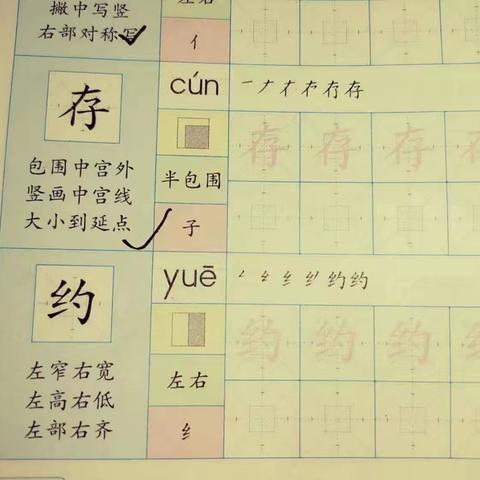 左右
撇中写竖
右部对称写
亻
存
cún
一ナイ冇存存
包围中宫外
竖画中宫线
大小到延点
半包围
子
存 存 存 存
约
yuē
纟约约
左窄右宽
左高右低
左部右齐
左右
纟
约 约 约 约